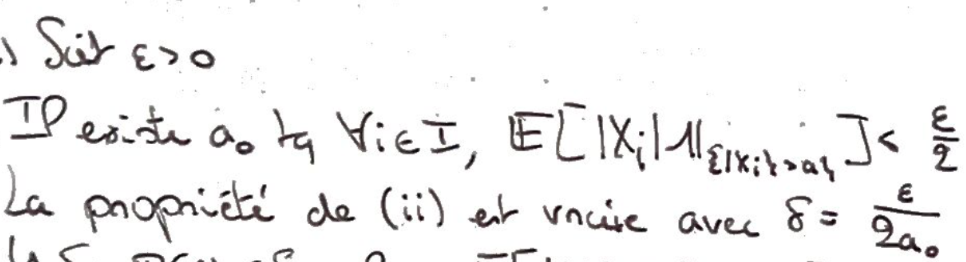 Soit ε>0
Il existe a₀ tq ∀i∈I, 𝔼[|Xᵢ|𝟙_{|Xᵢ|>a₀}] < ε/2
La propriété de (ii) est vraie avec δ = ε/2a₀